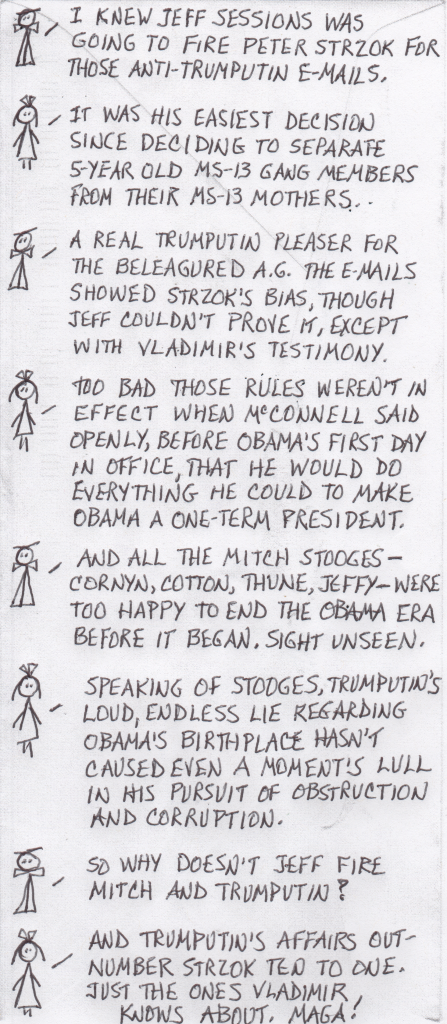 I KNEW JEFF SESSIONS WAS
GOING TO FIRE PETER STRZOK FOR
THOSE ANTI-TRUMPUTIN E-MAILS.
IT WAS HIS EASIEST DECISION
SINCE DECIDING TO SEPARATE
5-YEAR OLD MS-13 GANG MEMBERS
FROM THEIR MS-13 MOTHERS..
A REAL TRUMPUTIN PLEASER FOR
THE BELEAGURED A.G. THE E-MAILS
SHOWED STRZOK'S BIAS, THOUGH
JEFF COULDN'T PROVE IT, EXCEPT
WITH VLADIMIR'S TESTIMONY.
TOO BAD THOSE RULES WEREN'T IN
EFFECT WHEN McCONNELL SAID
OPENLY, BEFORE OBAMA'S FIRST DAY
IN OFFICE, THAT HE WOULD DO
EVERYTHING HE COULD TO MAKE
OBAMA A ONE-TERM PRESIDENT.
AND ALL THE MITCH STOOGES-
CORNYN, COTTON, THUNE, JEFFY-WERE
TOO HAPPY TO END THE OBAMA ERA
BEFORE IT BEGAN. SIGHT UNSEEN.
SPEAKING OF STOOGES, TRUMPUTIN'S
LOUD, ENDLESS LIE REGARDING
OBAMA'S BIRTHPLACE HASN'T
CAUSED EVEN A MOMENT'S LULL
IN HIS PURSUIT OF OBSTRUCTION
AND CORRUPTION.
SO WHY DOESN'T JEFF FIRE
MITCH AND TRUMPUTIN?
AND TRUMPUTIN'S AFFAIRS OUT-
NUMBER STRZOK TEN TO ONE.
JUST THE ONES VLADIMIR
KNOWS ABOUT. MAGA!